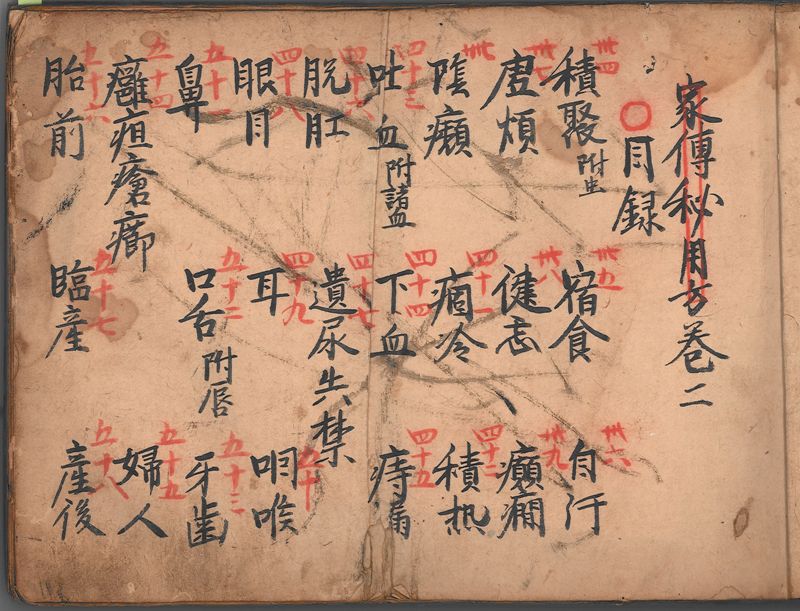 家傳秘用方卷二
○目録
卅四 積聚 附虫 卅五 宿食 卅六 自汗
卅七 虚煩 卅八 健忘 卅九 癲癇
卌 陰癩 四十一 痼冷 四十二 積热
四十三 吐血 附諸血 四十四 下血 四十五 痔漏
四十六 脱肛 四十七 遺尿失禁
四十八 眼目 四十九 耳 五十 咽喉
五十一 鼻 五十二 口舌 附唇 五十三 牙歯
五十四 癰疽瘡癤 五十五 婦人
五十六 胎前 五十七 臨産 五十八 産後